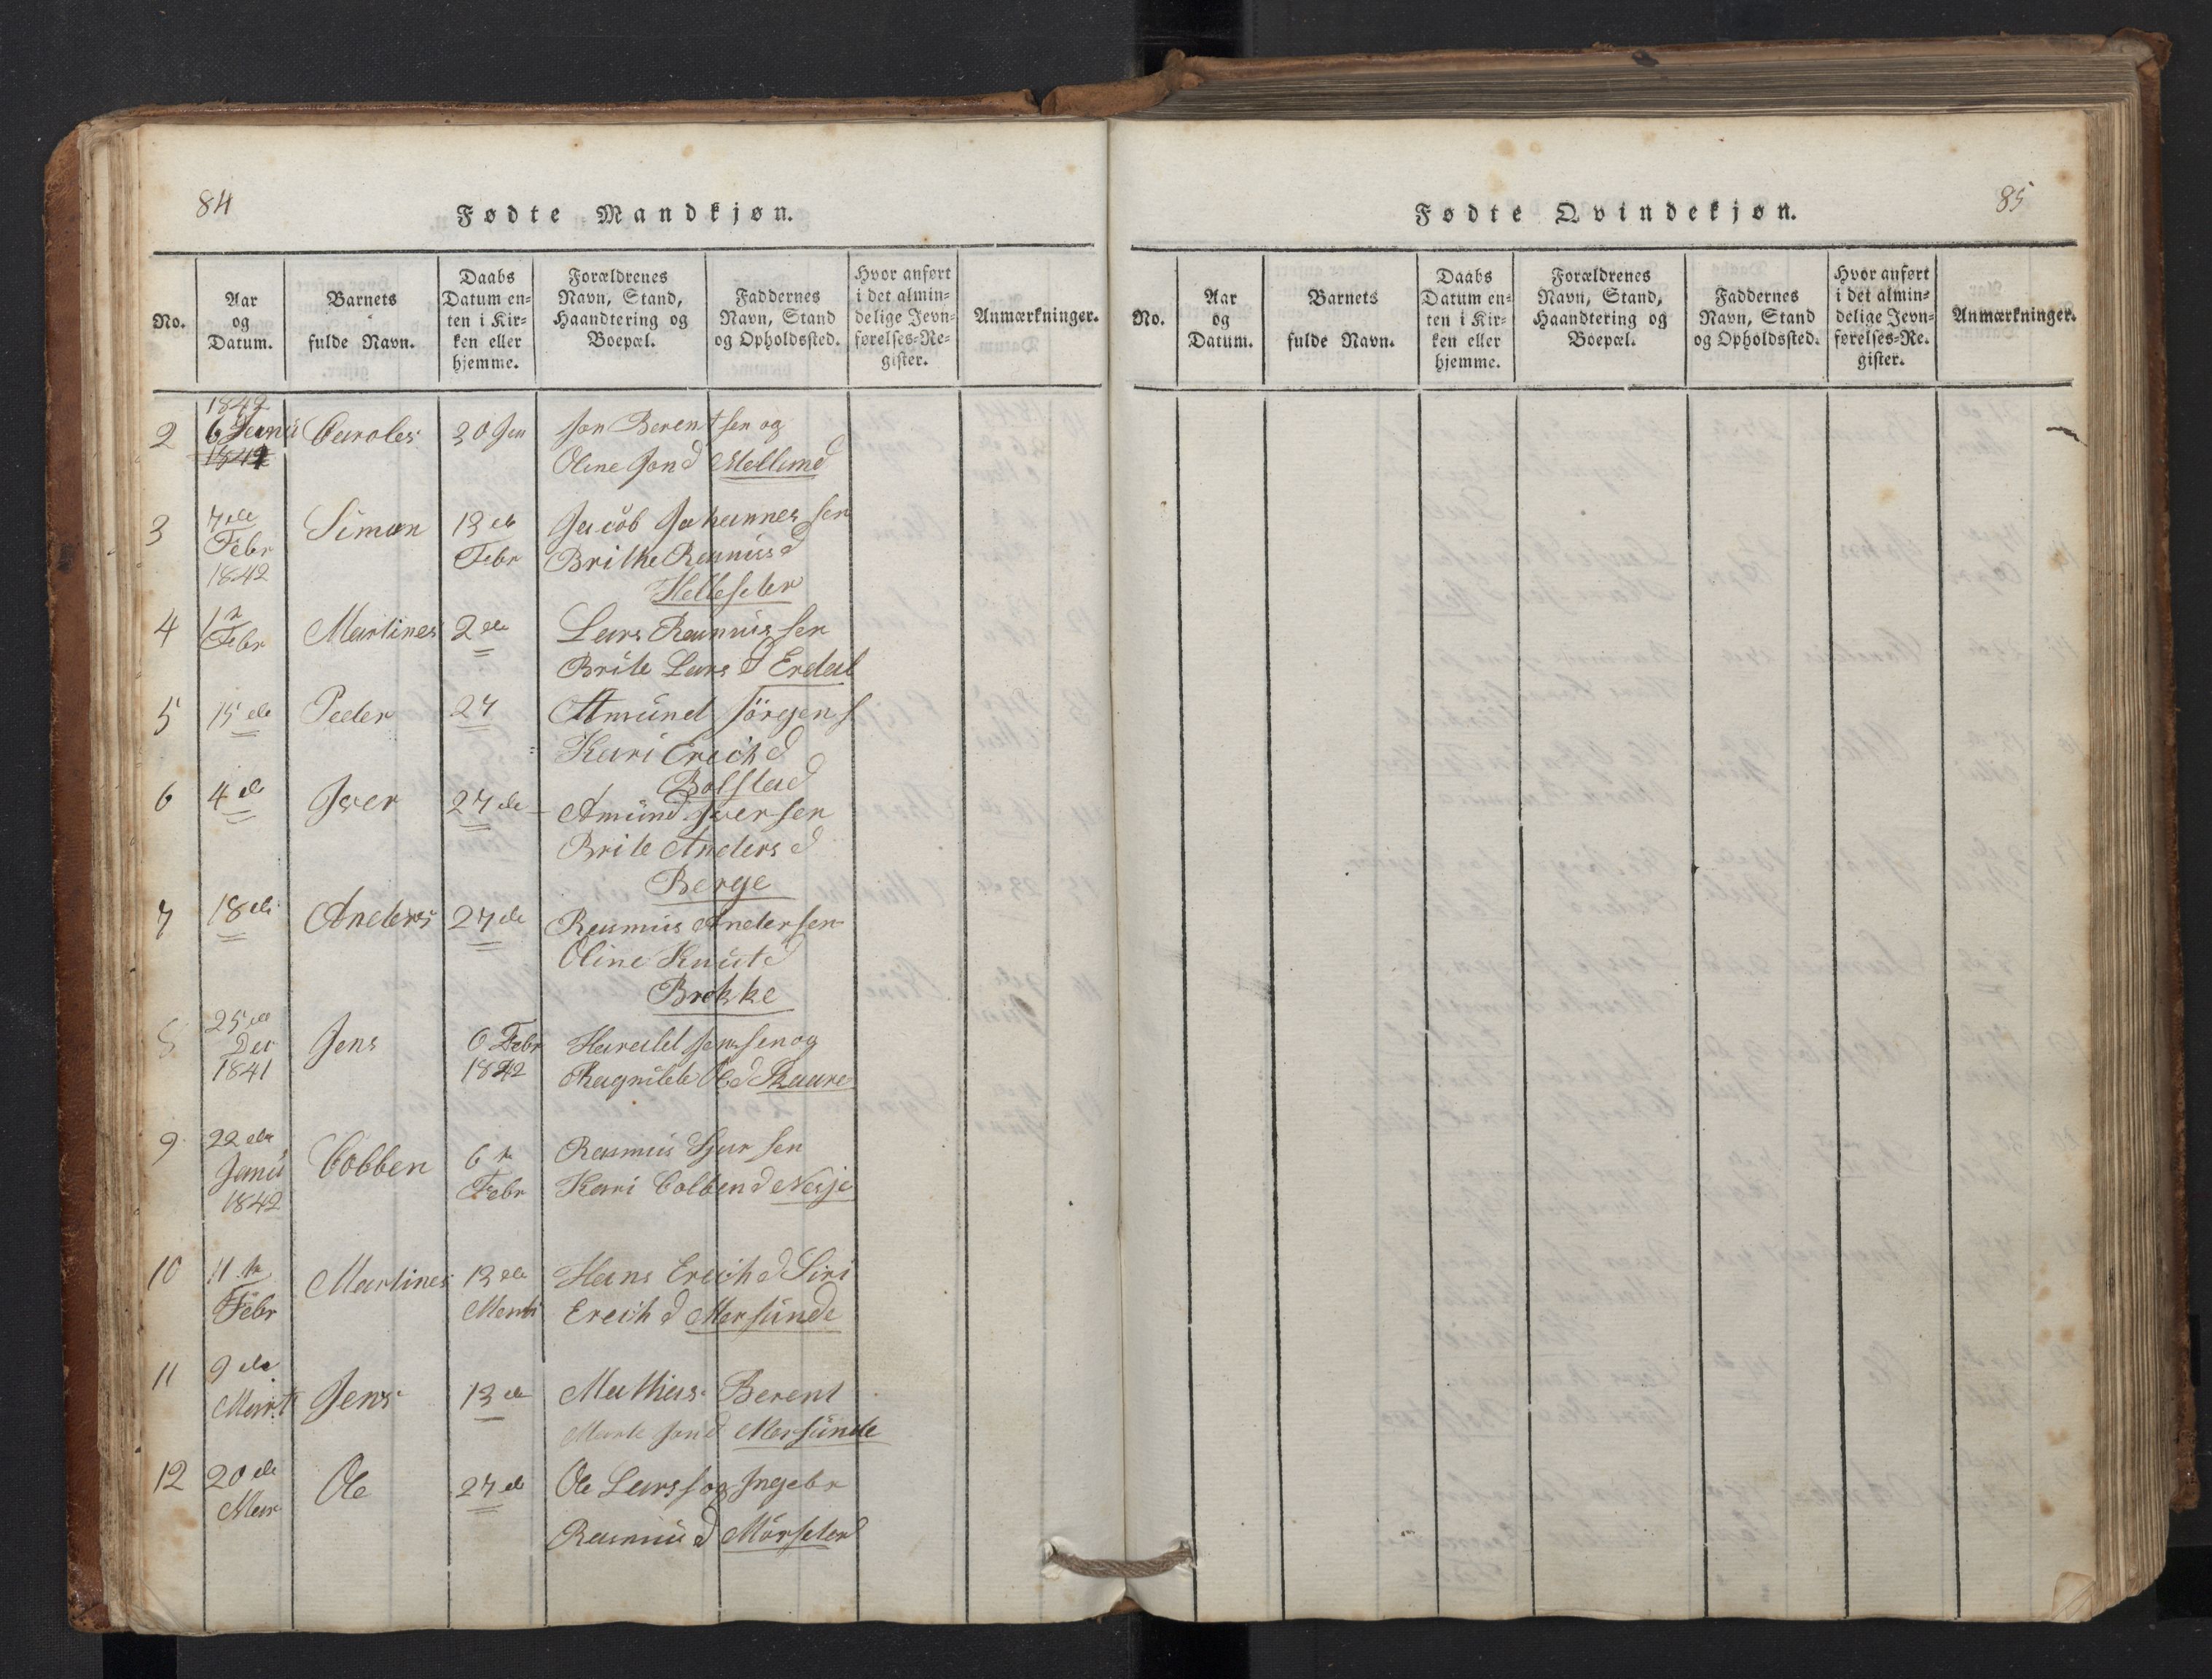 84
Fødte Mandkjøn.
No.
Aar
og
Datum.
Barnets
fulde Navn.
Daabs
Datum en-
ten i Kir-
ken eller
hjemme.
Forældrenes
Navn, Stand,
Haandtering og
Boepæl.
Faddernes
Navn, Stand
og Opholdssted.
Hvor anført
i det almin-
delige Jevn-
førelses-Re-
gister.
Anmærkninger.
1842
2 6 Janu Caroles 30 Jan Jon Berentsen og
1841 Oline Jon d Mellemd
3 7de Simon 13 de Jacob Johannessen
Febr Febr Brithe Rasmus d
1842 Helleseter
4 1ste Martines 2 de Lars Rasmussen
Febr Brite Lars d Erdal
5 15 de Peder 27 Amund Jörgen s
Kari Erich d
Bolstad
6 4 de Iver 27 de Amund Iversen
Brite Anders d
Berge
7 18 de Anders 27 de Rasmus Andersen
Oline Knut d
Brekke
8 25 de Jens 6 Febr Harald Jensen og
Des 1842
1841 Ragnilde Ole d Skaare
9 22 de Colben 6 te Rasmus Sjursen
Janu Febr Kari Colben d Nesje
1842
10 11 te Martines 13 de Hans Erich d Siri
Febr Marti Erich d Morsunde
11 9 de Jens 13 de Mathias Berent
Marti Marte Jon d Morsunde
12 20 de Ole 27 de Ole Lars s og Ingebr
Mar Rasmus d Mörseter
85
Fødte Qvindekjøn.
No.
Aar
og
Datum.
Barnets
fulde Navn.
Daabs
Datum en-
ten i Kir-
ken eller
hjemme.
Forældrenes
Navn, Stand,
Haandtering og
Boepæl.
Faddernes
Navn, Stand
og Opholdssted.
Hvor anført
i det almin-
delige Jevn-
førelses-Re-
gister.
Anmærkninger.